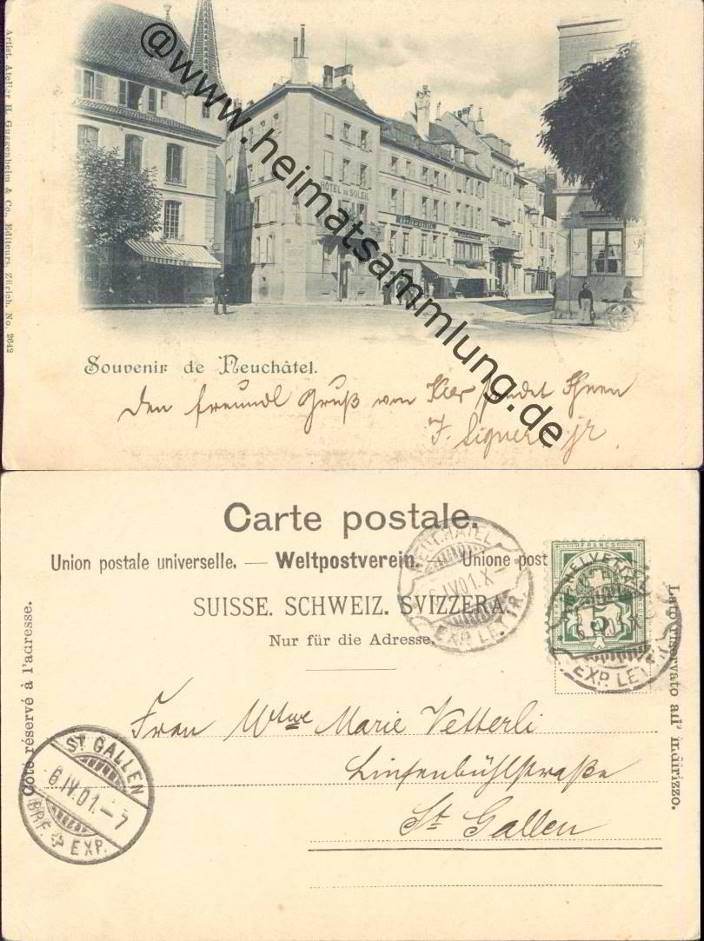 @www.heimatsammlung.de
Artist. Atelier H. Guggenheim & Co., Editeurs, Zürich. No. 2642
HÔTEL DU SOLEIL
Souvenir de Neuchâtel.
Den freundl Gruß von hier sendet Ihnen
J. Signer jr
Carte postale.
Union postale universelle. — Weltpostverein. — Unione post
SUISSE. SCHWEIZ. SVIZZERA.
Nur für die Adresse.
Côté réservé à l'adresse.
Lato riservato all' indirizzo.
NEUCHATEL
IV.01.X-
EXP. LETTR.
FRANCO
HELVETIA
5
EXP. LETTR.
Frau Wtwe Marie Vetterli
Linsenbühlstraße
St Gallen
ST GALLEN
6.IV.01.-7
BRF. EXP.